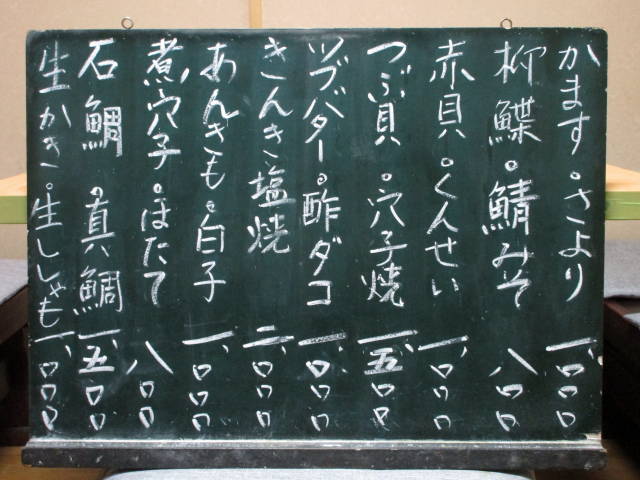 かます。さより 一、〇〇〇
柳鰈。鯖みそ 八〇〇
赤貝。くんせい 一、〇〇〇
つぶ貝。穴子焼 一、五〇〇
ツブバター。酢ダコ 一、〇〇〇
きんき塩焼 二、〇〇〇
あんきも。白子 一、〇〇〇
煮穴子。ほたて 八〇〇
石鯛。真鯛 一、五〇〇
生かき。生ししゃも 一、〇〇〇